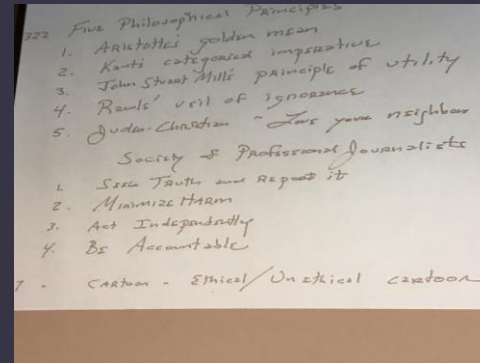 322 Five Philosophical Principles
1. Aristotle's golden mean
2. Kant's categorical imperative
3. John Stuart Mill's principle of utility
4. Rawls' veil of ignorance
5. Judeo-Christian "Love your neighbor
Society of Professional Journalists
1. Seek Truth and Report it
2. Minimize Harm
3. Act Independently
4. Be Accountable
7. Cartoon - Ethical/Unethical cartoon